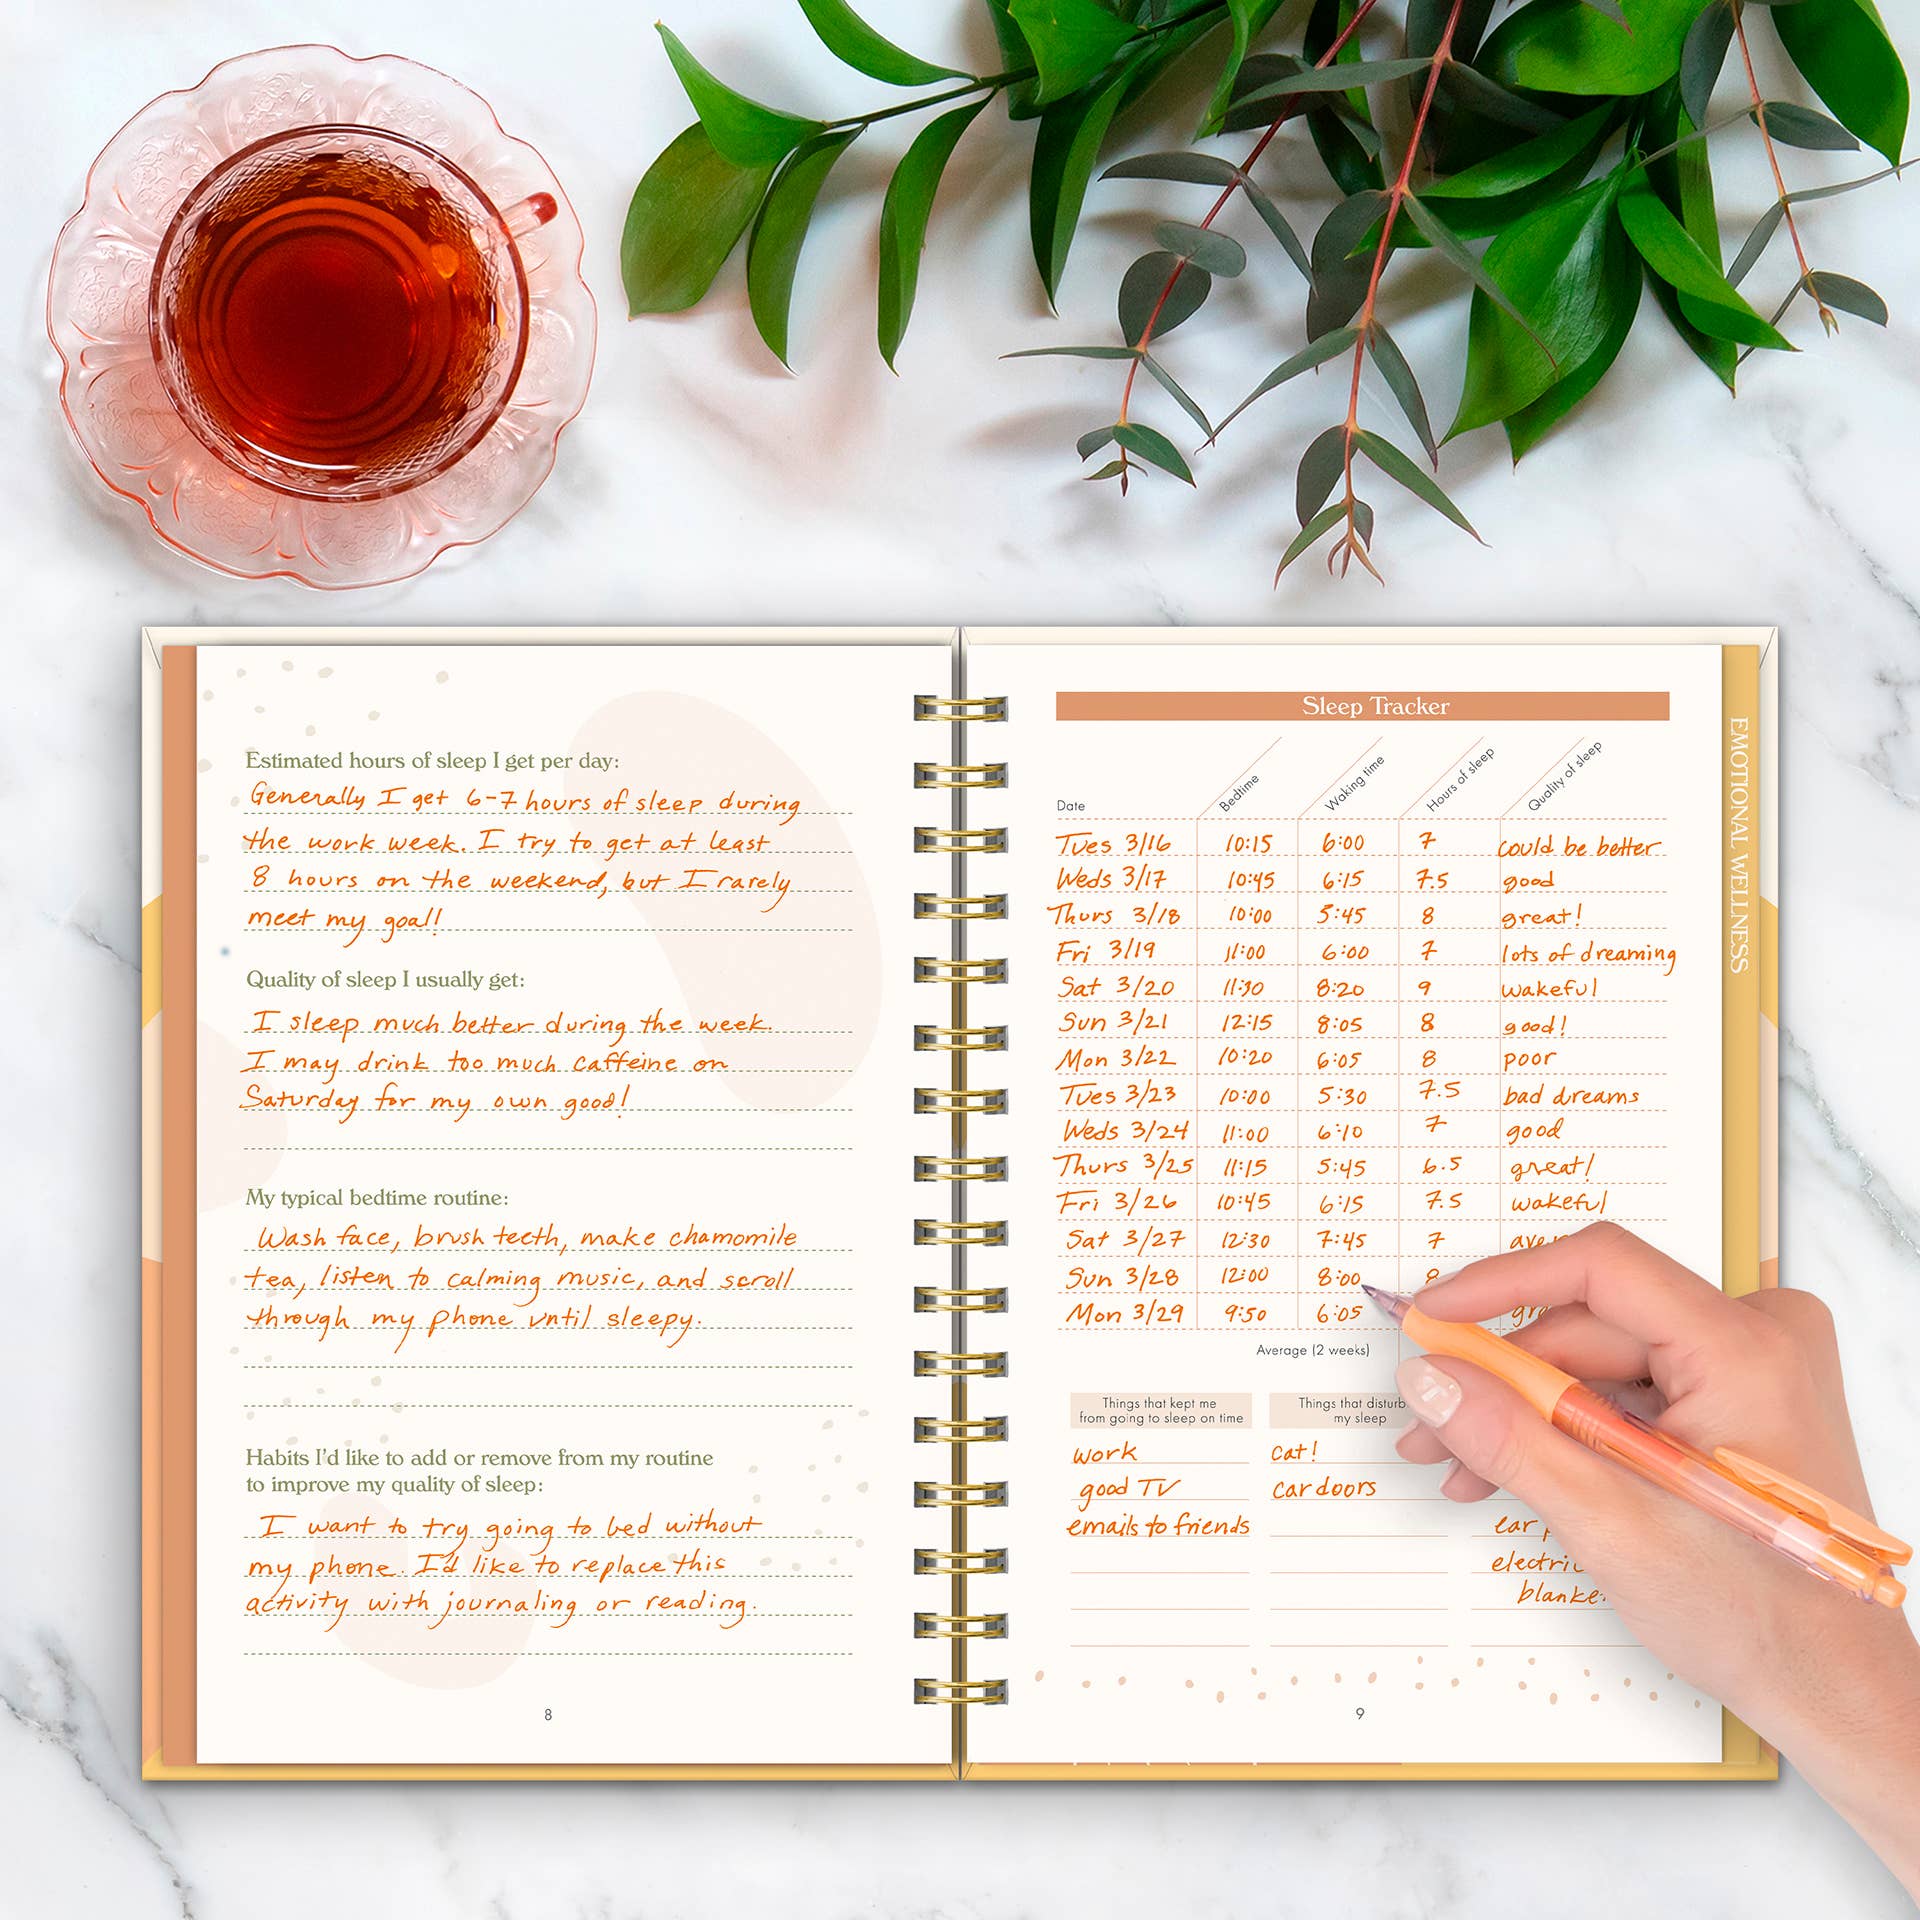 Estimated hours of sleep I get per day:
Generally I get 6-7 hours of sleep during
the work week. I try to get at least
8 hours on the weekend, but I rarely
meet my goal!
Quality of sleep I usually get:
I sleep much better during the week.
I may drink too much caffeine on
Saturday for my own good!
My typical bedtime routine:
Wash face, brush teeth, make chamomile
tea, listen to calming music, and scroll
through my phone until sleepy.
Habits I'd like to add or remove from my routine
to improve my quality of sleep:
I want to try going to bed without
my phone. I'd like to replace this
activity with journaling or reading.
8
Sleep Tracker
Date Bedtime Waking time Hours of sleep Quality of sleep
Tues 3/16 10:15 6:00 7 could be better
Weds 3/17 10:45 6:15 7.5 good
Thurs 3/18 10:00 5:45 8 great!
Fri 3/19 11:00 6:00 7 lots of dreaming
Sat 3/20 11:30 8:20 9 wakeful
Sun 3/21 12:15 8:05 8 good!
Mon 3/22 10:20 6:05 8 poor
Tues 3/23 10:00 5:30 7.5 bad dreams
Weds 3/24 11:00 6:10 7 good
Thurs 3/25 11:15 5:45 6.5 great!
Fri 3/26 10:45 6:15 7.5 wakeful
Sat 3/27 12:30 7:45 7
Sun 3/28 12:00 8:00 8
Mon 3/29 9:50 6:05
Average (2 weeks)
Things that kept me
from going to sleep on time
work
good TV
emails to friends
Things that disturb
my sleep
cat!
car doors
ear
electric
blanket
9
EMOTIONAL WELLNESS